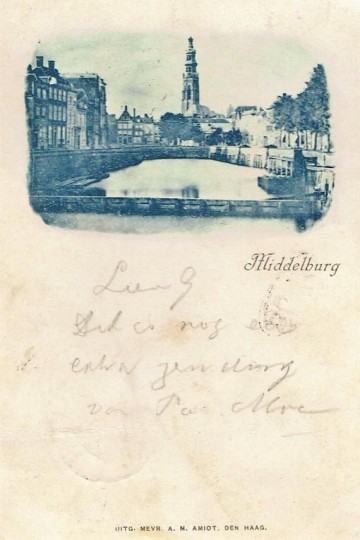 Middelburg
Lien G
Dit is nog een
extra zending
van Pa. Moe
UITG. MEVR. A. M. AMIOT, DEN HAAG.